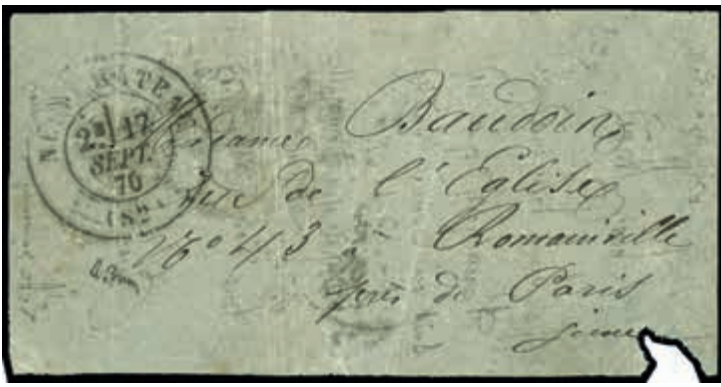 NEUFCHATEAU
2E 17
SEPT.
70
(82)
Madame Baudoin
rue de l'Eglise
N° 43 a Romainville
près de Paris
Seine